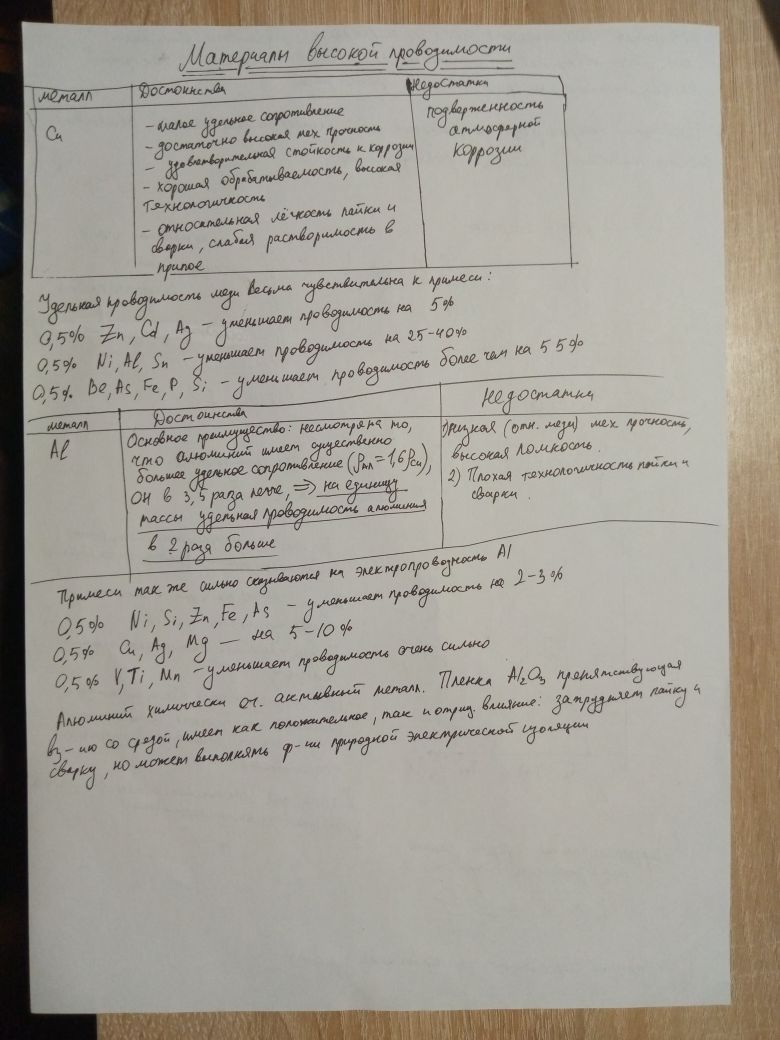 Материалы высокой проводимости
металл Достоинства Недостатки
Cu
- малое удельное сопротивление
- достаточно высокая мех прочность
- удовлетворительная стойкость к коррозии
- хорошая обрабатываемость, высокая
технологичность
- относительная лёгкость пайки и
сварки, слабая растворимость в
припое
подверженность
атмосферной
коррозии
Удельная проводимость меди весьма чувствительна к примеси:
0,5% Zn, Cd, Ag - уменьшает проводимость на 5%
0,5% Ni, Al, Sn - уменьшает проводимость на 25-40%
0,5% Be, As, Fe, P, Si - уменьшает проводимость более чем на 55%
металл Достоинства Недостатки
Al
Основное преимущество: несмотря на то,
что алюминий имеет существенно
большее удельное сопротивление (ρAl = 1,6 ρCu),
он в 3,5 раза легче, => на единицу
массы удельная проводимость алюминия
в 2 раза больше
1) Низкая (отн. меди) мех прочность,
высокая ломкость.
2) Плохая технологичность пайки и
сварки.
Примеси так же сильно сказываются на электропроводность Al
0,5% Ni, Si, Zn, Fe, As - уменьшает проводимость на 2-3%
0,5% Cu, Ag, Mg — на 5-10%
0,5% V, Ti, Mn - уменьшает проводимость очень сильно
Алюминий химически оч. активный металл. Пленка Al2O3 препятствующая
вз-ию со средой, имеет как положительное, так и отриц. влияние: затрудняет пайку и
сварку, но может выполнять ф-ии природной электрической изоляции